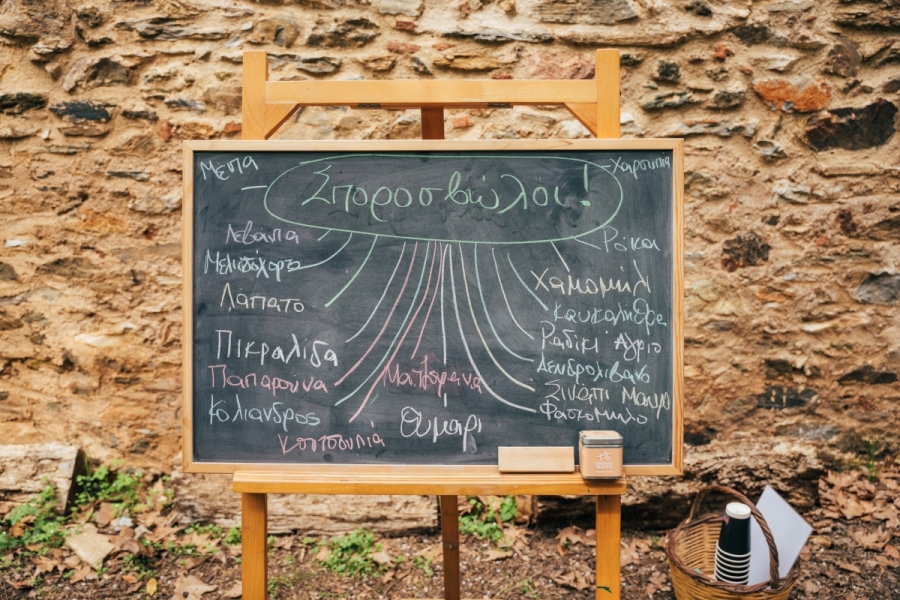 Σποροσβώλοι!
Μέπα
Λεβάντα
Μελισσόχορτο
Λάπατο
Πικραλίδα
Παπαρούνα
Κόλιανδρος
Κουτσουπιά
Ματζουράνα
Θυμάρι
Χαρουπιά
Ρόκα
Χαμομήλι
Καυκαλήθρα
Ραδίκι Άγριο
Δενδρολίβανο
Σινάπι Μαύρο
Φασκόμηλο